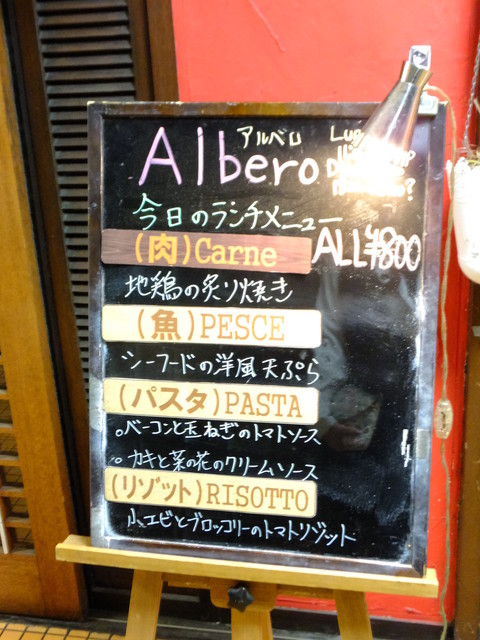 アルベロ
Albero
今日のランチメニュー
ALL¥800
(肉)Carne
地鶏の炙り焼き
(魚)PESCE
シーフードの洋風天ぷら
(パスタ)PASTA
。ベーコンと玉ねぎのトマトソース
。カキと菜の花のクリームソース
(リゾット)RISOTTO
小エビとブロッコリーのトマトリゾット